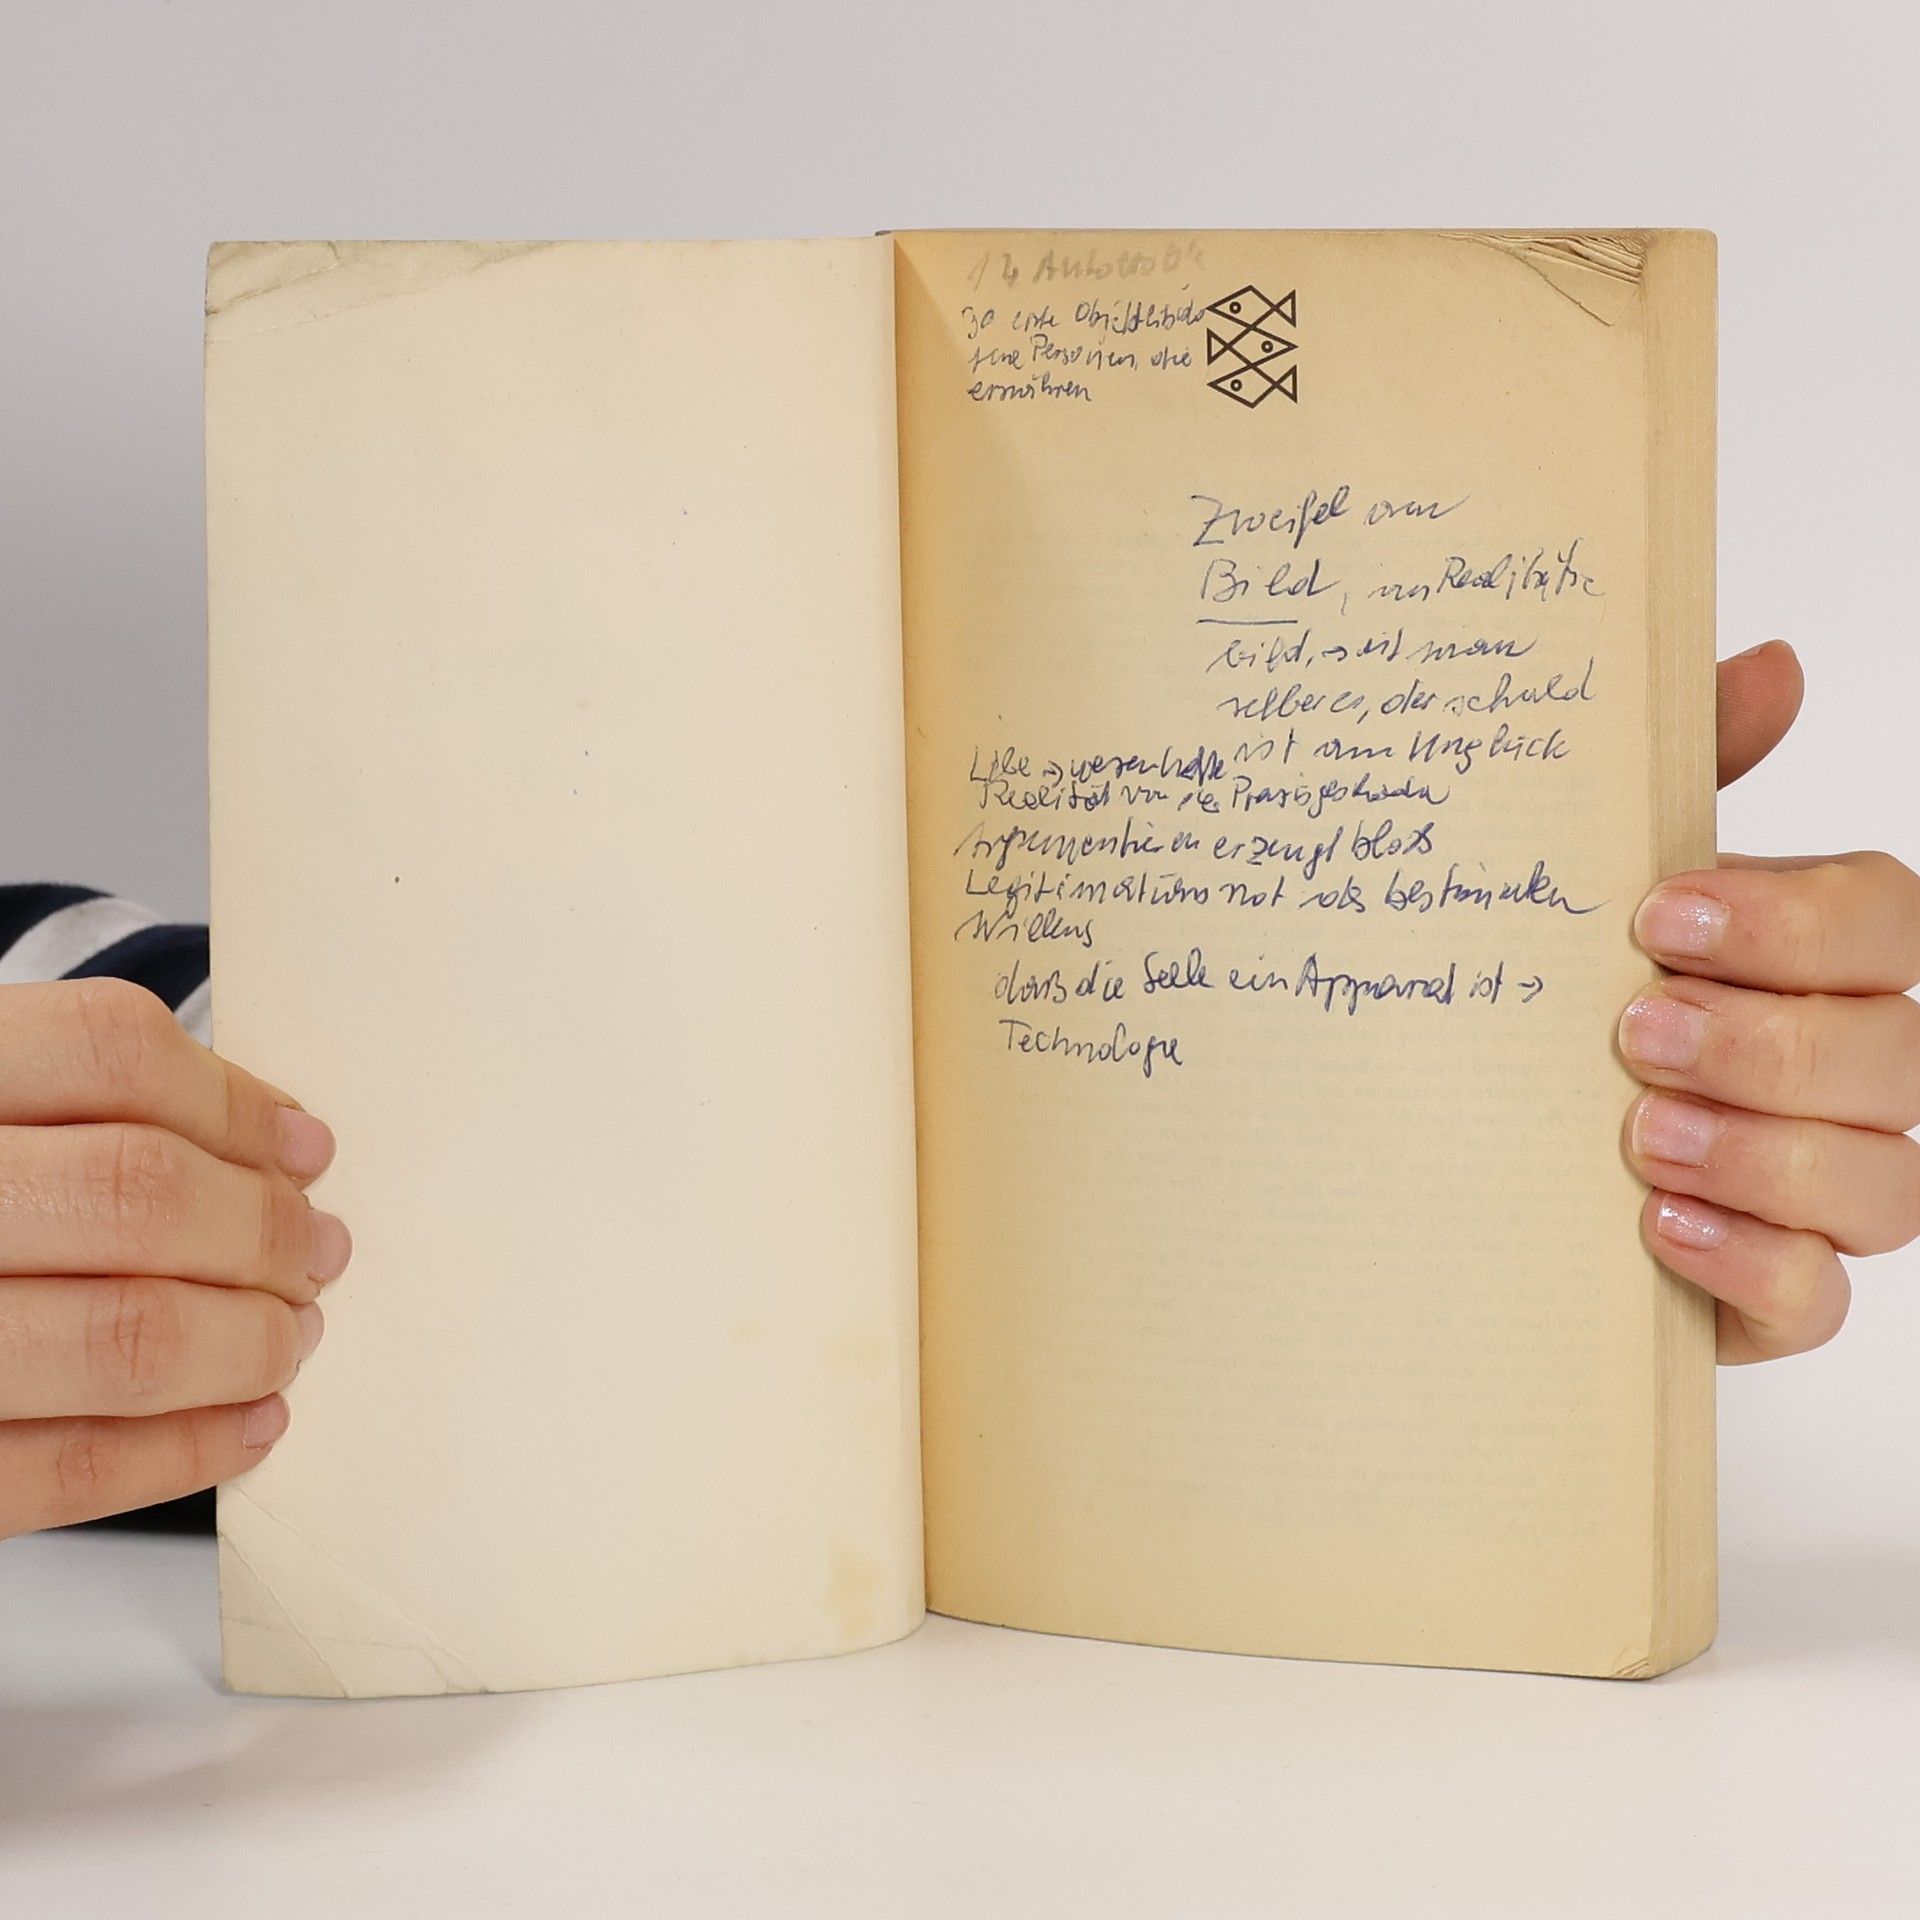 erste Objektlibido
Personen, die
ernähren
Zweifel am
Bild, am Realitäts
bild, → ist man
selber es, der schuld
ist am Unglück
Liebe → wesenhafte
Realität von
Argumentieren erzeugt bloß
Legitimations not des bestimmten
Willens
daß die Seele ein Apparat ist →
Technologie